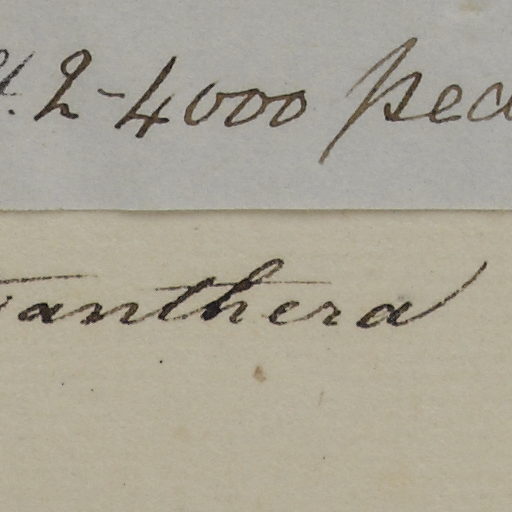 2-4000 ped
anthera